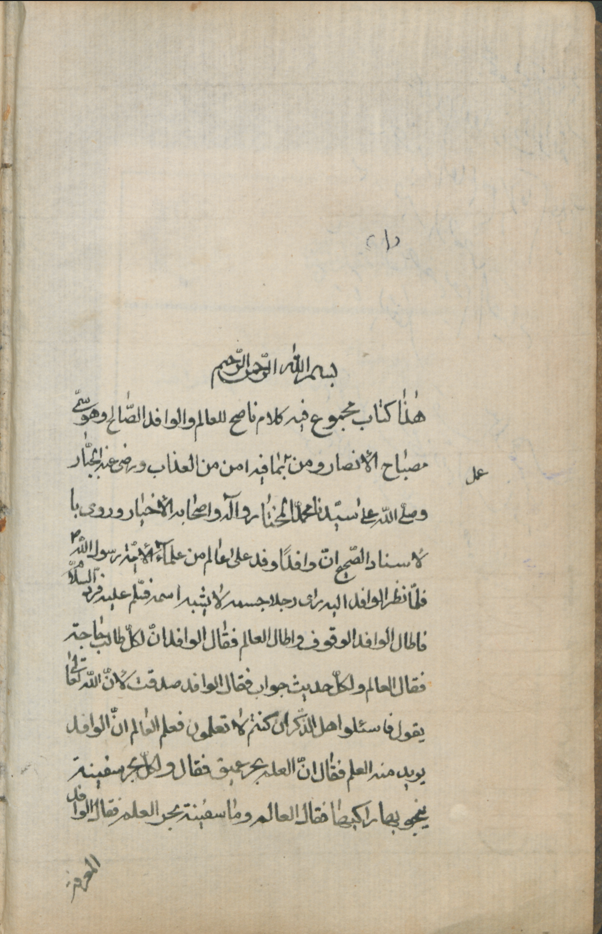 بسم الله الرحمن الرحيم
هذا كتاب مجموع فيه كلام ناصح للعالم والوافد الصالح وهو سمّي
مصباح الانصار ومن بما فيه امن من العذاب ورضى عنه الجبّار
عمل
وصلى الله على سيّدنا محمد المختار وآله واصحابه الاخيار وروى با
لاسناد الصحيح انّ وافدًا وفد على عالم من علماء الامّة رسول الله
فلمّا نظر الوافد اليه راى رجلا جسمه لا يشبه اسمه فسلم عليه فرد السلام
فاطال الوافد الوقوف واطال العالم فقال الوافد انّ لكلّ طالب حاجة
فقال العالم ولكلّ حديث جواب فقال الوافد صدقت لانّ الله تعالى
يقول فاسئلوا اهل الذكر ان كنتم لا تعلمون فعلم العالم انّ الوافد
يريد منه العلم فقال انّ العلم بحر عميق فقال ولكلّ بحر سفينة
ينجو بها راكبها فقال العالم وما سفينة بحر العلم فقال الوافد
المعرفة